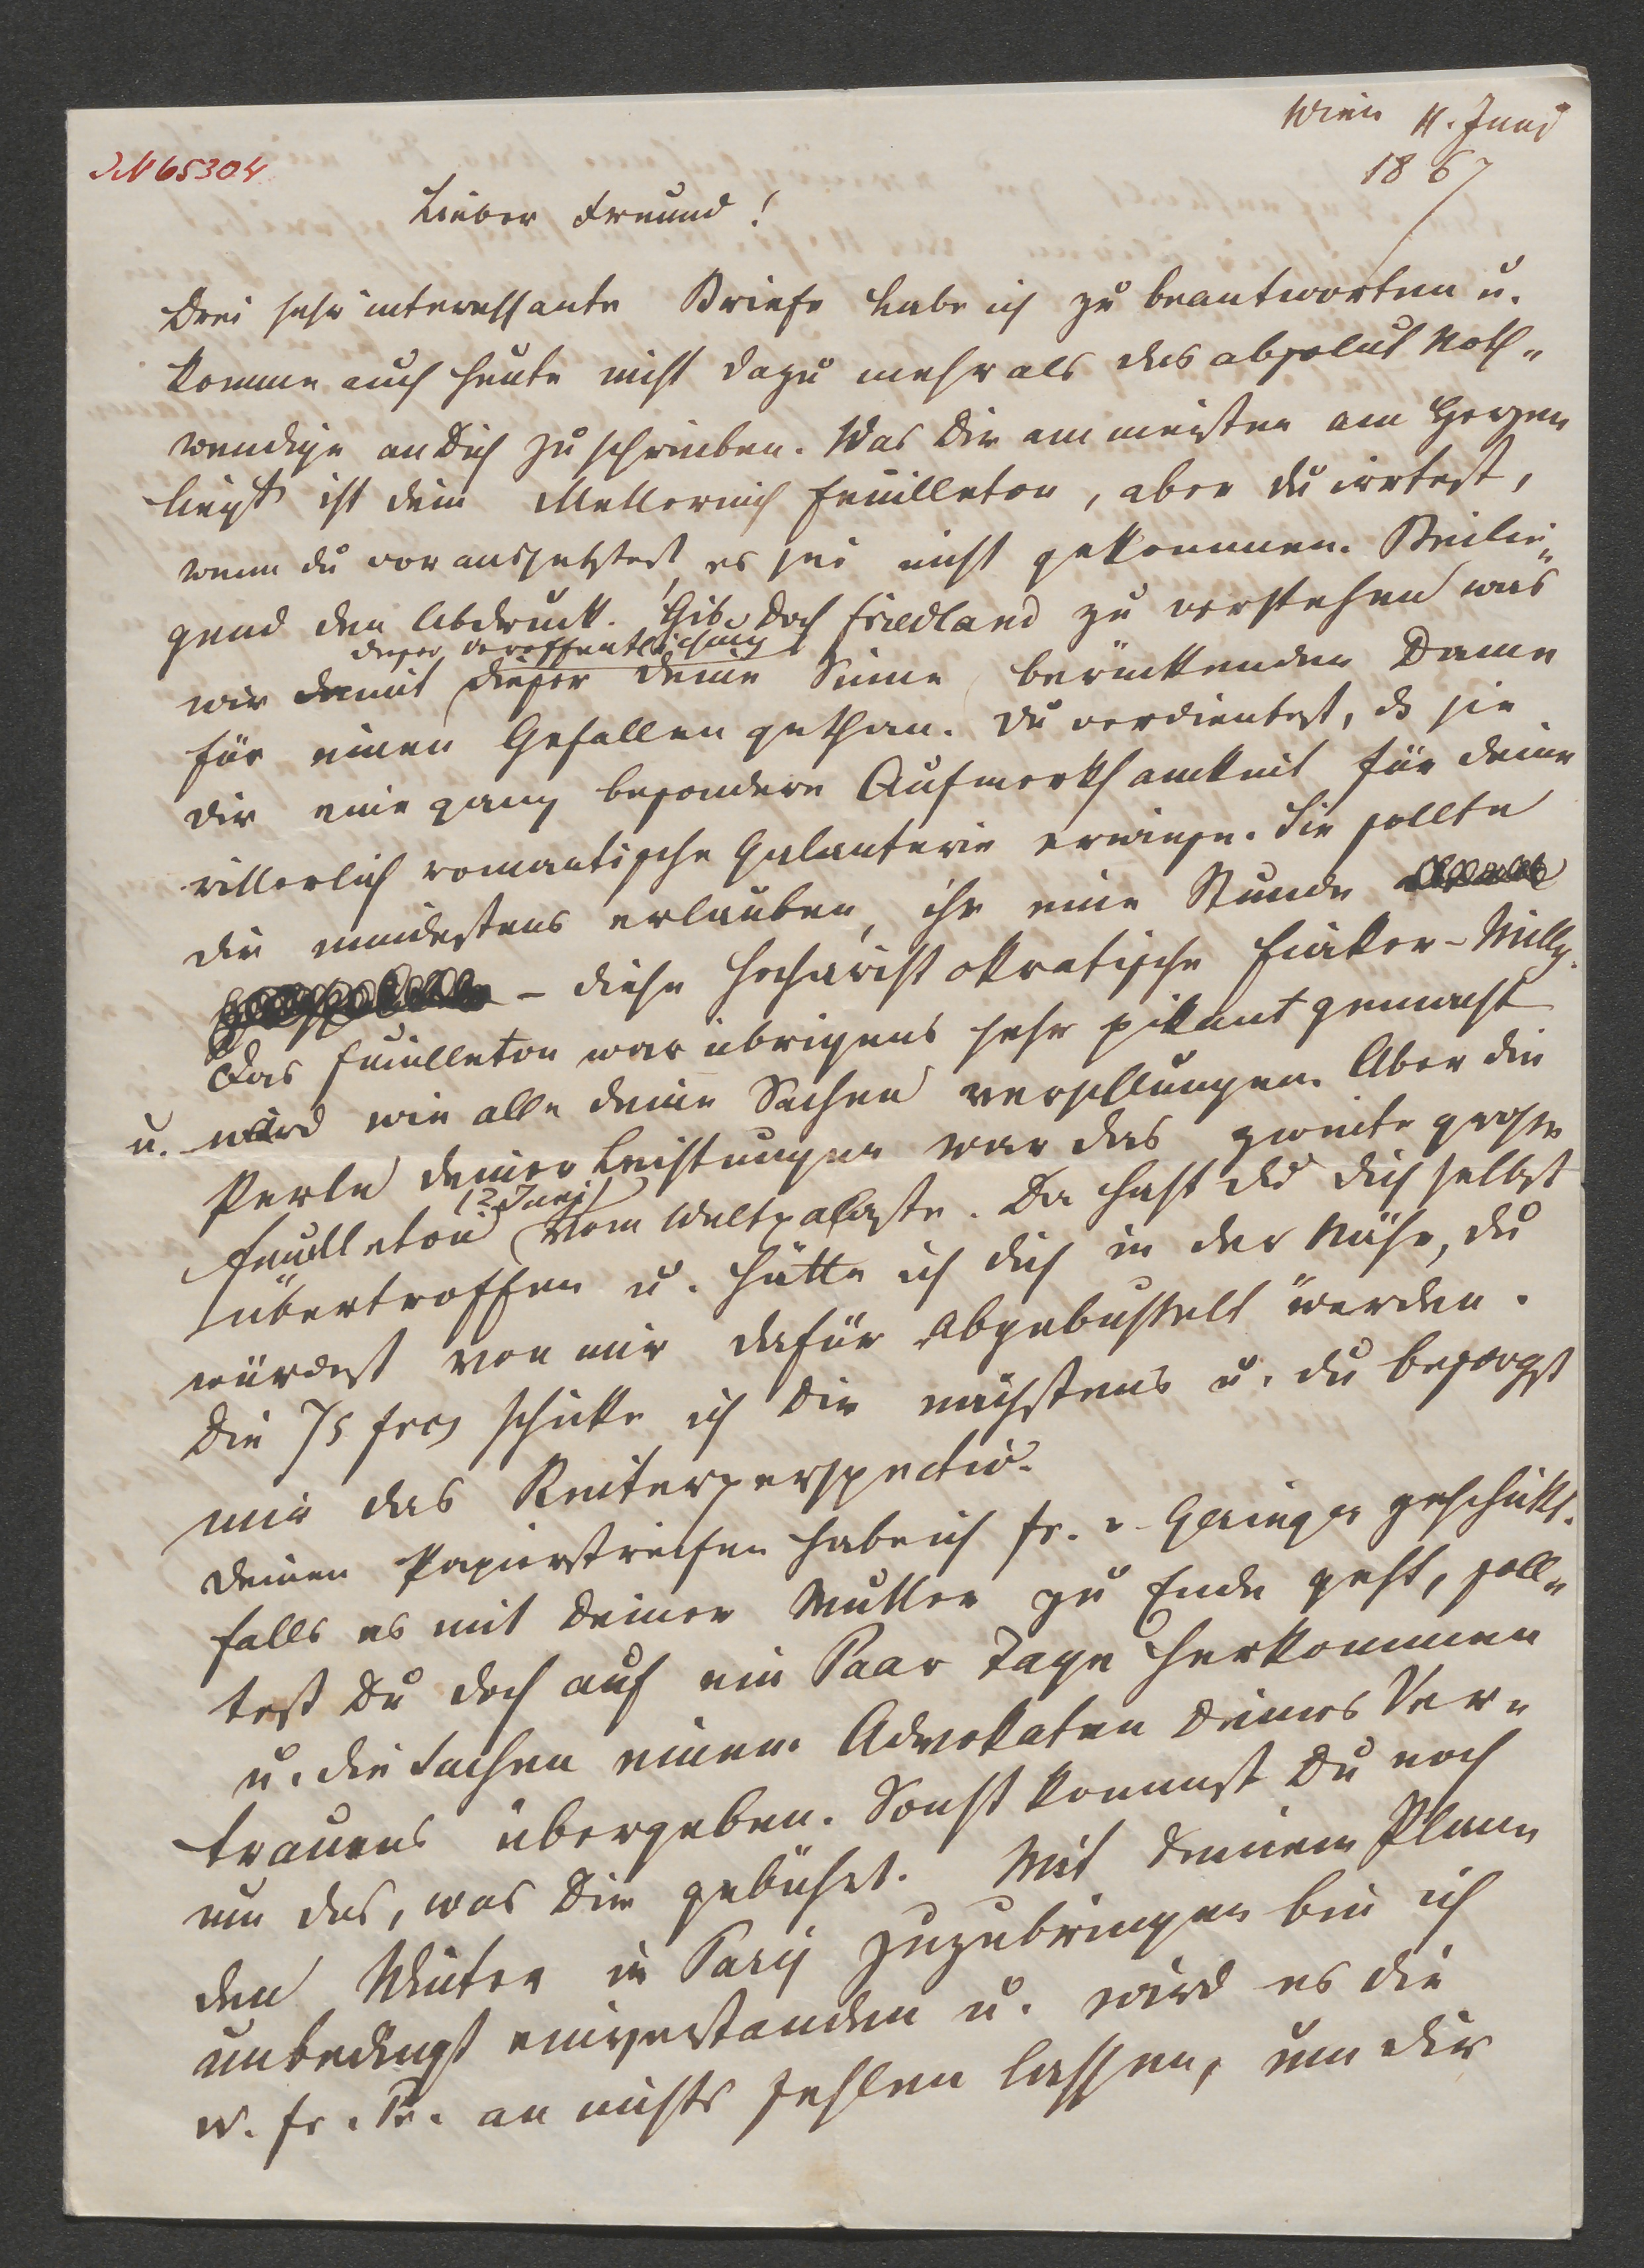 Wien 11. Juni
1867
IN 65304
Lieber Freund!
Drei sehr interessante Briefe habe ich zu beantworten u.
komme auch heute nicht dazu mehr als das absolut Noth-
wendige an Dich zu schreiben. Was Dir am meisten am Herzen
liegt ist dein Metternich Feuilleton, aber du irrtest,
wenn du voraussetztest, es sei nicht gekommen. Beilie-
gend den Abdruck. Gib doch Friedland zu verstehen was
dieser Veröffentlichung
wir damit dieser deine Sinne berückenden Dame
für einen Gefallen gethan. Du verdientest, ds sie
dir eine ganz besondere Aufmerksamkeit für deine
ritterlich romantische Galanterie erweise. Sie sollte
dir mindestens erlauben, ihr eine Stunde
– diese hocharistokratische Fiaker-Milly.
Das Feuilleton war übrigens sehr pikant gemacht
u. wird wie alle deine Sachen verschlungen. Aber die
Perle deiner Leistungen war das zweite große
(2. Juni)
Feuilleton vom Weltpalaste. Da hast du dich selbst
übertroffen u. hätte ich dich in der Nähe, du
würdest von mir dafür abgebusselt werden.
Die 75 frcs schicke ich Dir nächstens u. du besorgst
mir das Reiterperspectiv.
Deinen Papierstreifen habe ich Fr. v. geschickt.
Falls es mit Deiner Mutter zu Ende geht, soll-
test Du doch auf ein Paar Tage herkommen
u. die Sachen einem Advokaten Deines Ver-
trauens übergeben. Sonst kommst Du noch
um das, was Dir gebührt. Mit Deinem Plane
den Winter in Paris zuzubringen bin ich
unbedingt einverstanden u. wird es die
N. Fr. Pr. an nichts fehlen lassen, um dir